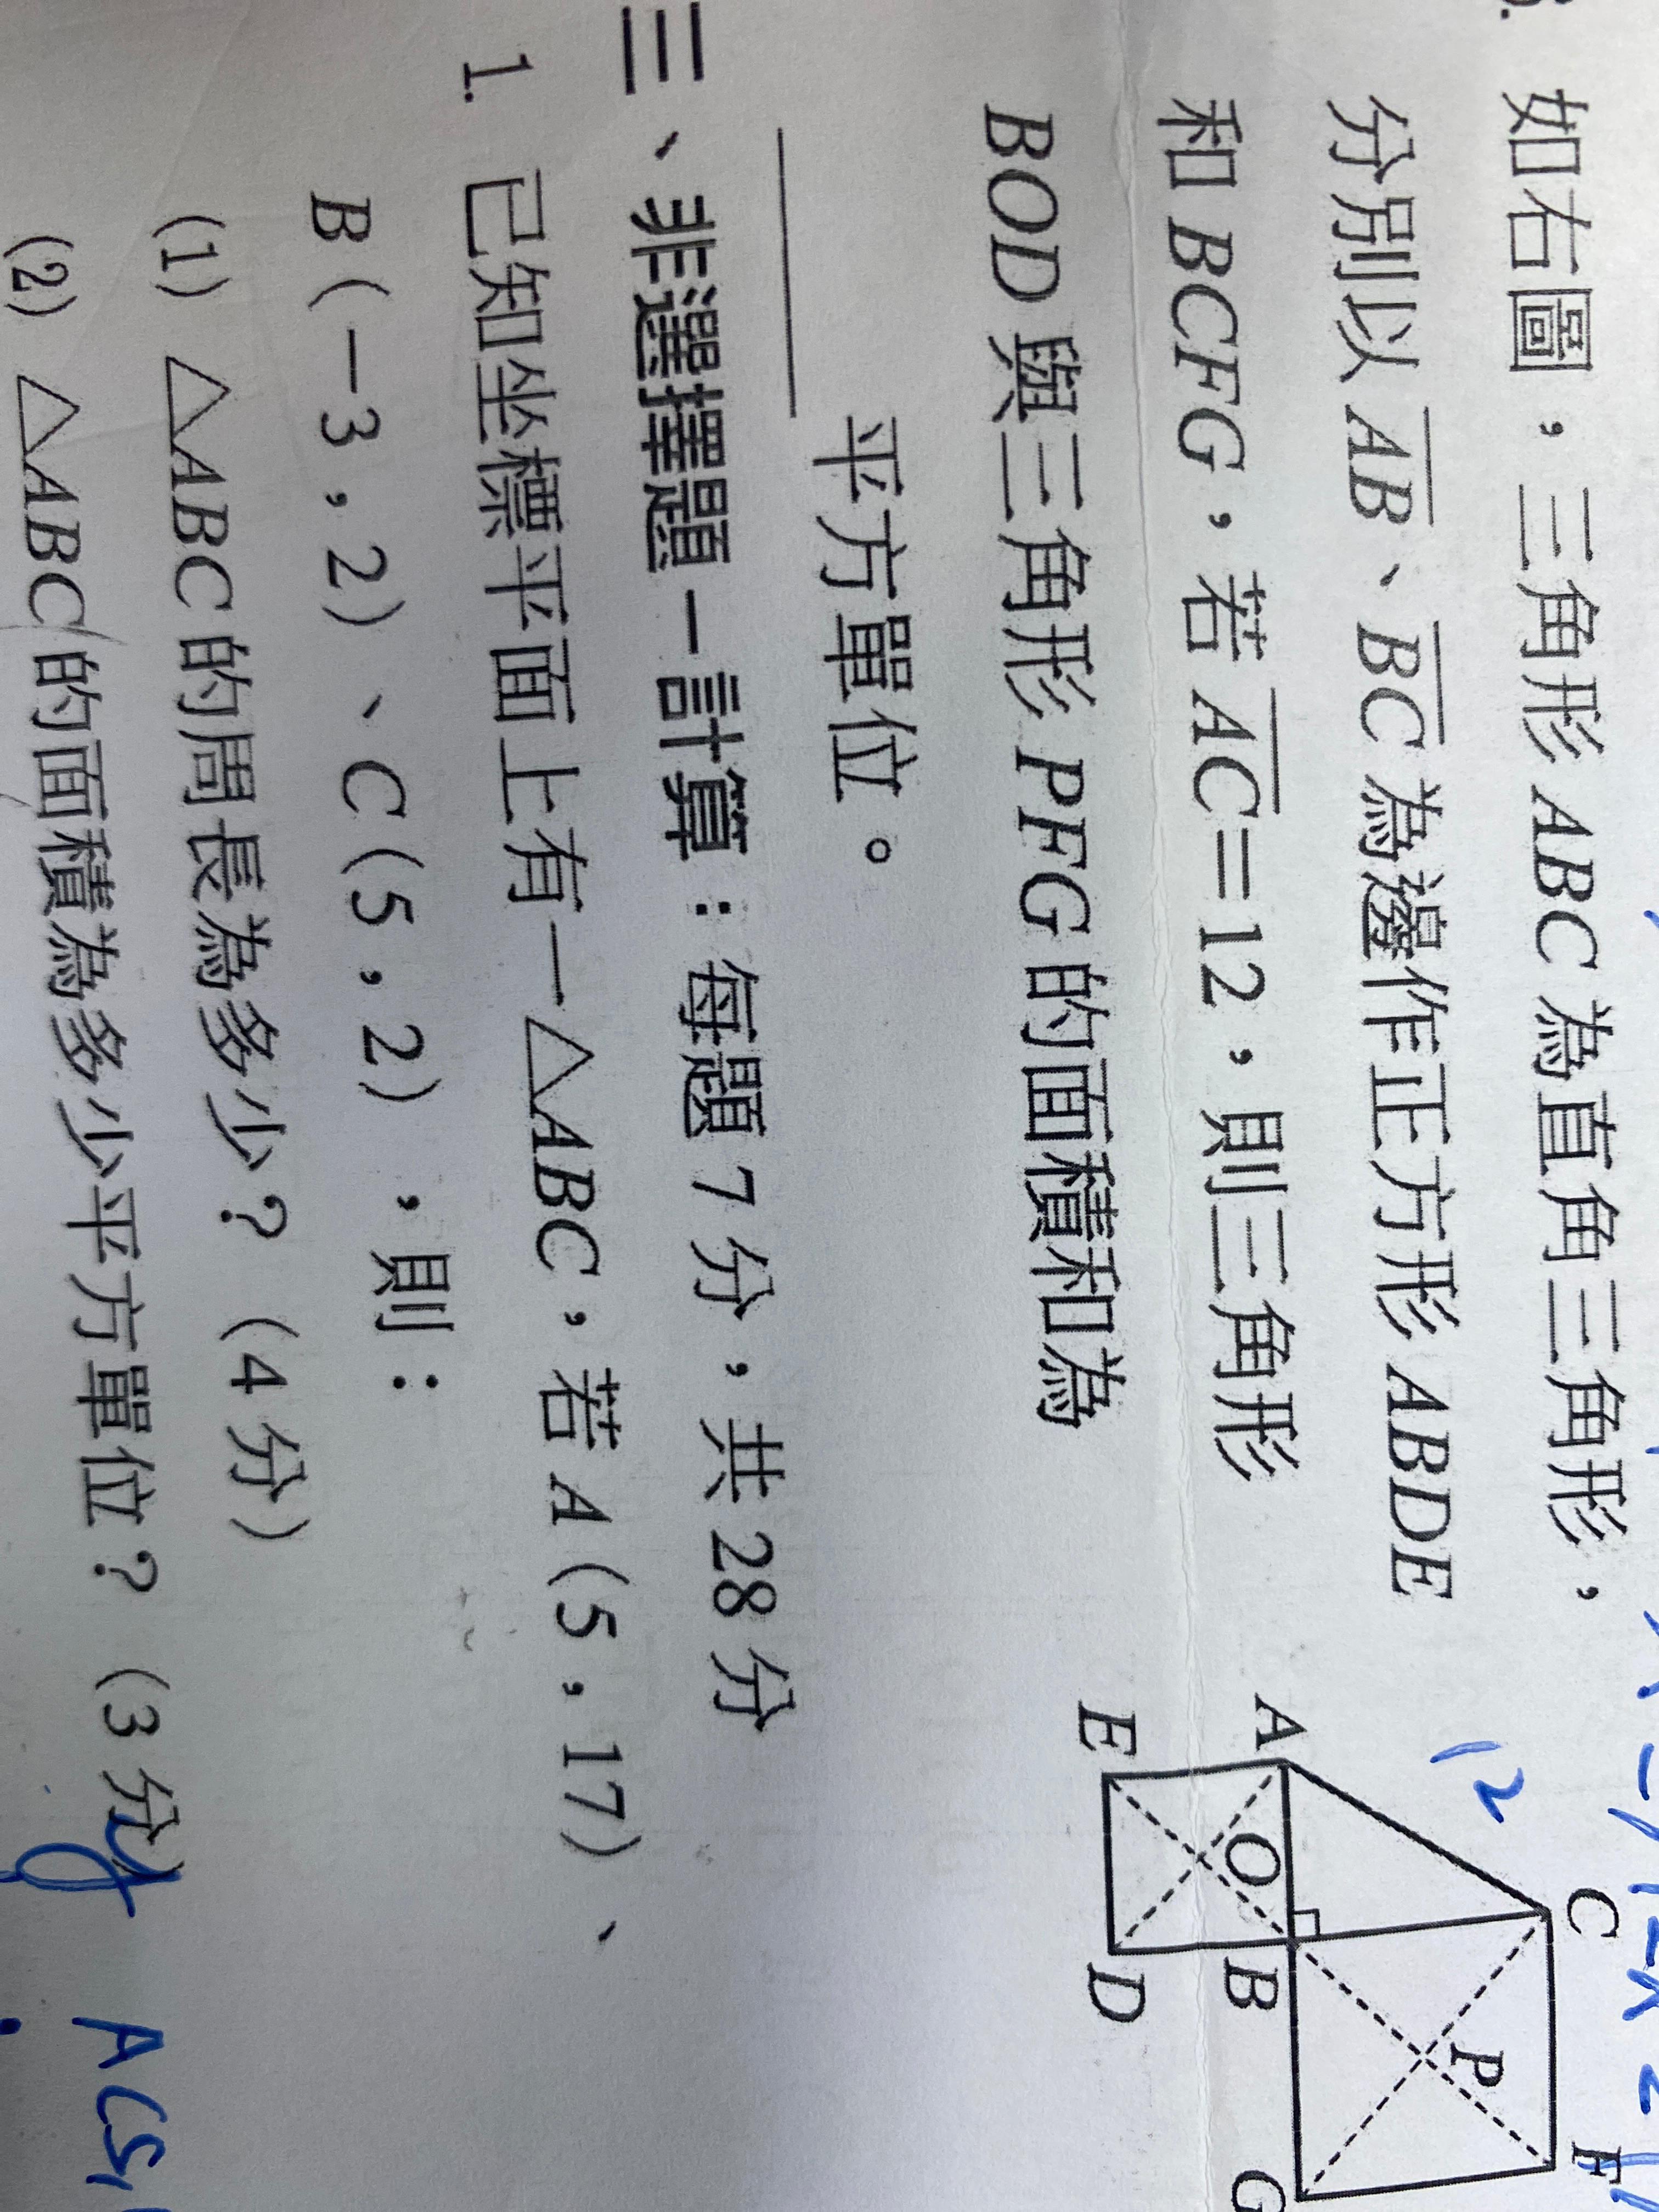 如右圖，三角形 ABC 為直角三角形，
分別以 AB、BC 為邊作正方形 ABDE
和 BCFG，若 AC＝12，則三角形
BOD 與三角形 PFG 的面積和為
平方單位。
A
C
F
P
O
B
G
E
D
12
三、非選擇題－計算：每題 7 分，共 28 分
1. 已知坐標平面上有一△ABC，若 A（5，17）、
B（－3，2）、C（5，2），則：
(1) △ABC 的周長為多少？（4 分）
(2) △ABC 的面積為多少平方單位？（3 分）